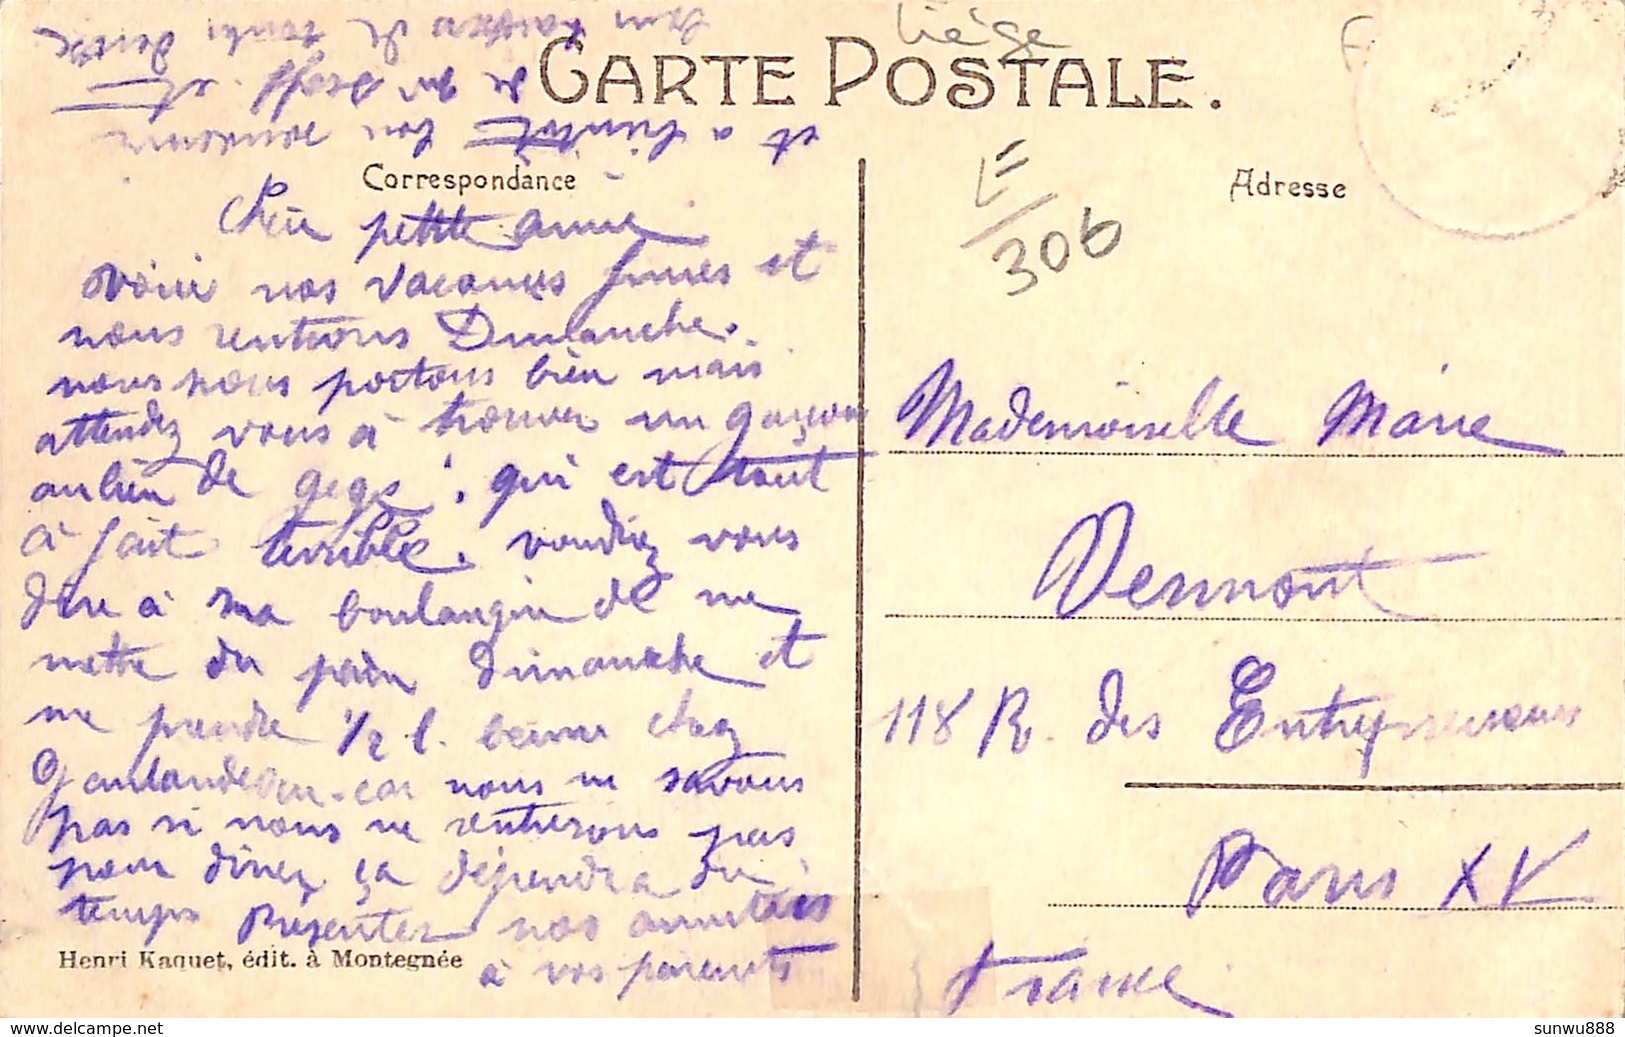 Liège
CARTE POSTALE.
Correspondance
Adresse
E/306
Chère petite amie
Voici nos vacances finies et
nous rentrons Dimanche.
nous nous portons bien mais
attendez vous à trouver un garçon
au lieu de gege, qui est tout
à fait terrible. voudriez vous
dire à ma boulangère de me
mettre du pain dimanche et
me prendre 1/2 l. beurre chez
car nous ne savons
pas si nous ne rentrerons pas
pour diner ça dépendra du
temps Présentez nos amitiés
à vos parents
et a bientôt bon
de qui et
de
Mademoiselle Marie
Vermont
118 R. des Entrepreneurs
Paris XV
France
Henri Kaquet, édit. à Montegnée
www.delcampe.net
sunwu888